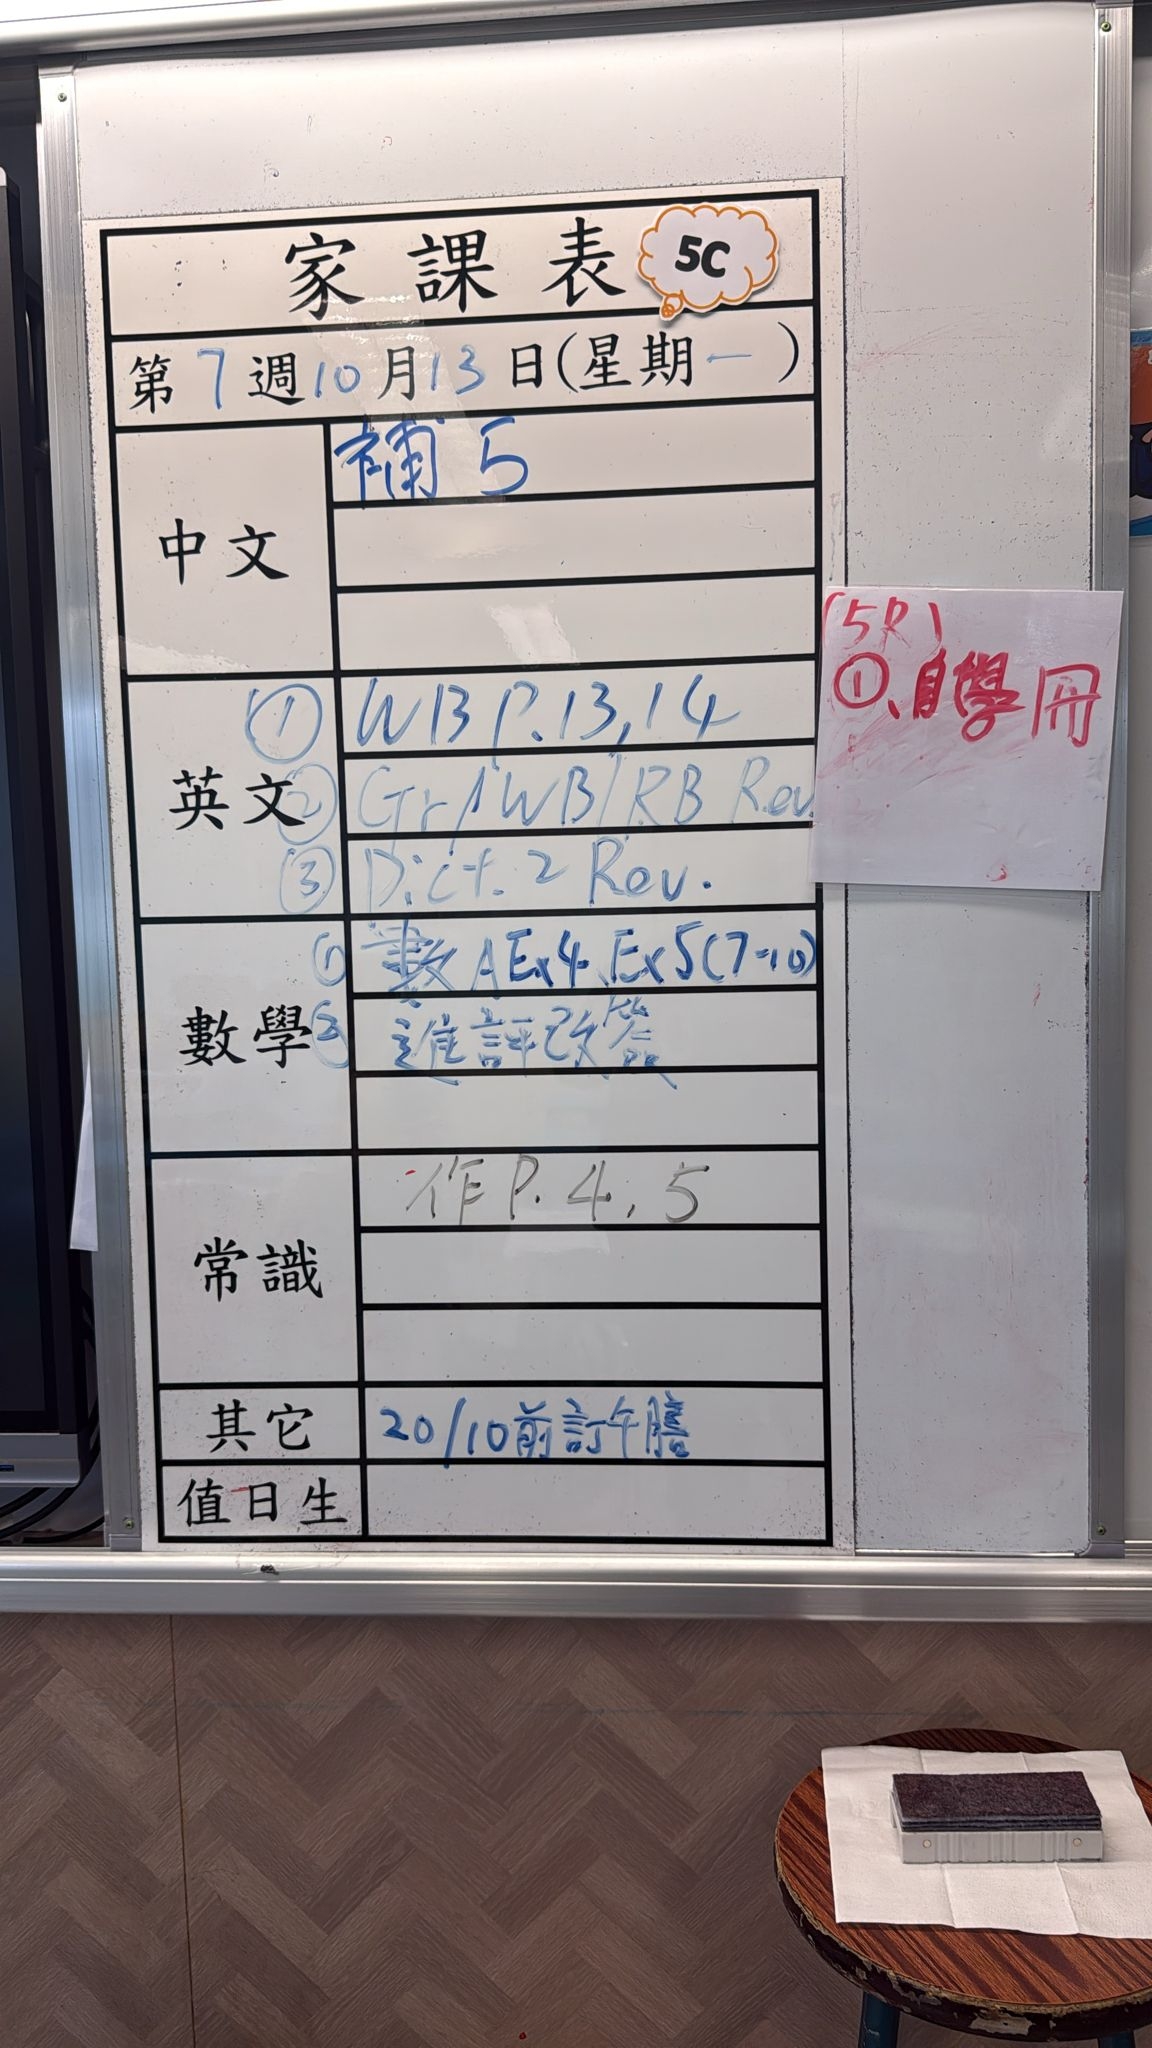 家課表 5C
第7週10月13日(星期一)
中文
補5
英文
① WB P.13,14
② Gr/WB/RB Rev.
③ Dict. 2 Rev.
數學
① 數A Ex4、Ex5(7-10)
② 進評改簽
常識
作P.4,5
其它
20/10前訂午膳
值日生
(5R)
①、自學冊